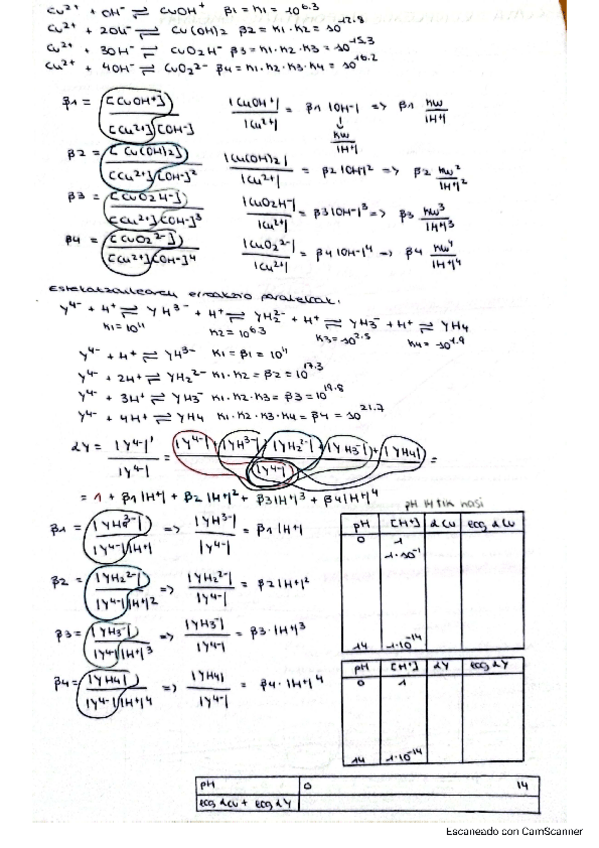 Cu²⁺ + OH⁻ ⇌ CuOH⁺ β1 = K1 = 10^6.3
Cu²⁺ + 2OH⁻ ⇌ Cu(OH)2 β2 = K1·K2 = 10^12.8
Cu²⁺ + 3OH⁻ ⇌ CuO2H⁻ β3 = K1·K2·K3 = 10^15.3
Cu²⁺ + 4OH⁻ ⇌ CuO2²⁻ β4 = K1·K2·K3·K4 = 10^16.2
β1 = [CuOH⁺] / [Cu²⁺][OH⁻] |CuOH⁺| / |Cu²⁺| = β1 |OH⁻| => β1 Kw / |H⁺|
↓
Kw / |H⁺|
β2 = [Cu(OH)2] / [Cu²⁺][OH⁻]² |Cu(OH)2| / |Cu²⁺| = β2 |OH|² => β2 Kw² / |H⁺|²
β3 = [CuO2H⁻] / [Cu²⁺][OH⁻]³ |CuO2H⁻| / |Cu²⁺| = β3 |OH⁻|³ => β3 Kw³ / |H⁺|³
β4 = [CuO2²⁻] / [Cu²⁺][OH⁻]⁴ |CuO2²⁻| / |Cu²⁺| = β4 |OH⁻|⁴ => β4 Kw⁴ / |H⁺|⁴
erreakzio paraleloak.
Y⁴⁻ + H⁺ ⇌ YH³⁻ + H⁺ ⇌ YH2²⁻ + H⁺ ⇌ YH3⁻ + H⁺ ⇌ YH4
K1 = 10^11 K2 = 10^6.3 K3 = 10^2.5 K4 = 10^1.9
Y⁴⁻ + H⁺ ⇌ YH³⁻ K1 = β1 = 10^11
Y⁴⁻ + 2H⁺ ⇌ YH2²⁻ K1·K2 = β2 = 10^17.3
Y⁴⁻ + 3H⁺ ⇌ YH3⁻ K1·K2·K3 = β3 = 10^19.8
Y⁴⁻ + 4H⁺ ⇌ YH4 K1·K2·K3·K4 = β4 = 10^21.7
αY = |Y⁴⁻|' / |Y⁴⁻| = |Y⁴⁻| + |YH³⁻| + |YH2²⁻| + |YH3⁻| + |YH4| / |Y⁴⁻| =
= 1 + β1 |H⁺| + β2 |H⁺|² + β3 |H⁺|³ + β4 |H⁺|⁴
β1 = |YH³⁻| / |Y⁴⁻||H⁺| => |YH³⁻| / |Y⁴⁻| = β1 |H⁺|
β2 = |YH2²⁻| / |Y⁴⁻||H⁺|2 => |YH2²⁻| / |Y⁴⁻| = β2 |H⁺|²
β3 = |YH3⁻| / |Y⁴⁻||H⁺|³ => |YH3⁻| / |Y⁴⁻| = β3·|H⁺|³
β4 = |YH4| / |Y⁴⁻||H⁺|4 => |YH4| / |Y⁴⁻| = β4·|H⁺|⁴
pH 14tik hasi
pH [H⁺] αCu log αCu
0 1
1·10⁻¹
14 1·10⁻¹⁴
pH [H⁺] αY log αY
0 1
14 1·10⁻¹⁴
pH 0 14
log αCu + log αY
Escaneado con CamScanner